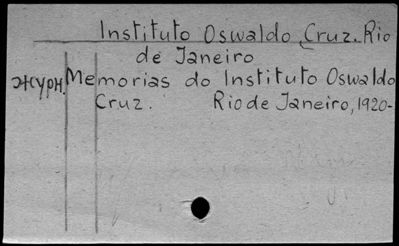 Instituto Oswaldo Cruz. Rio
de Janeiro
Жypн. Memorias do Instituto Oswaldo
Cruz. Rio de Janeiro, 1920-